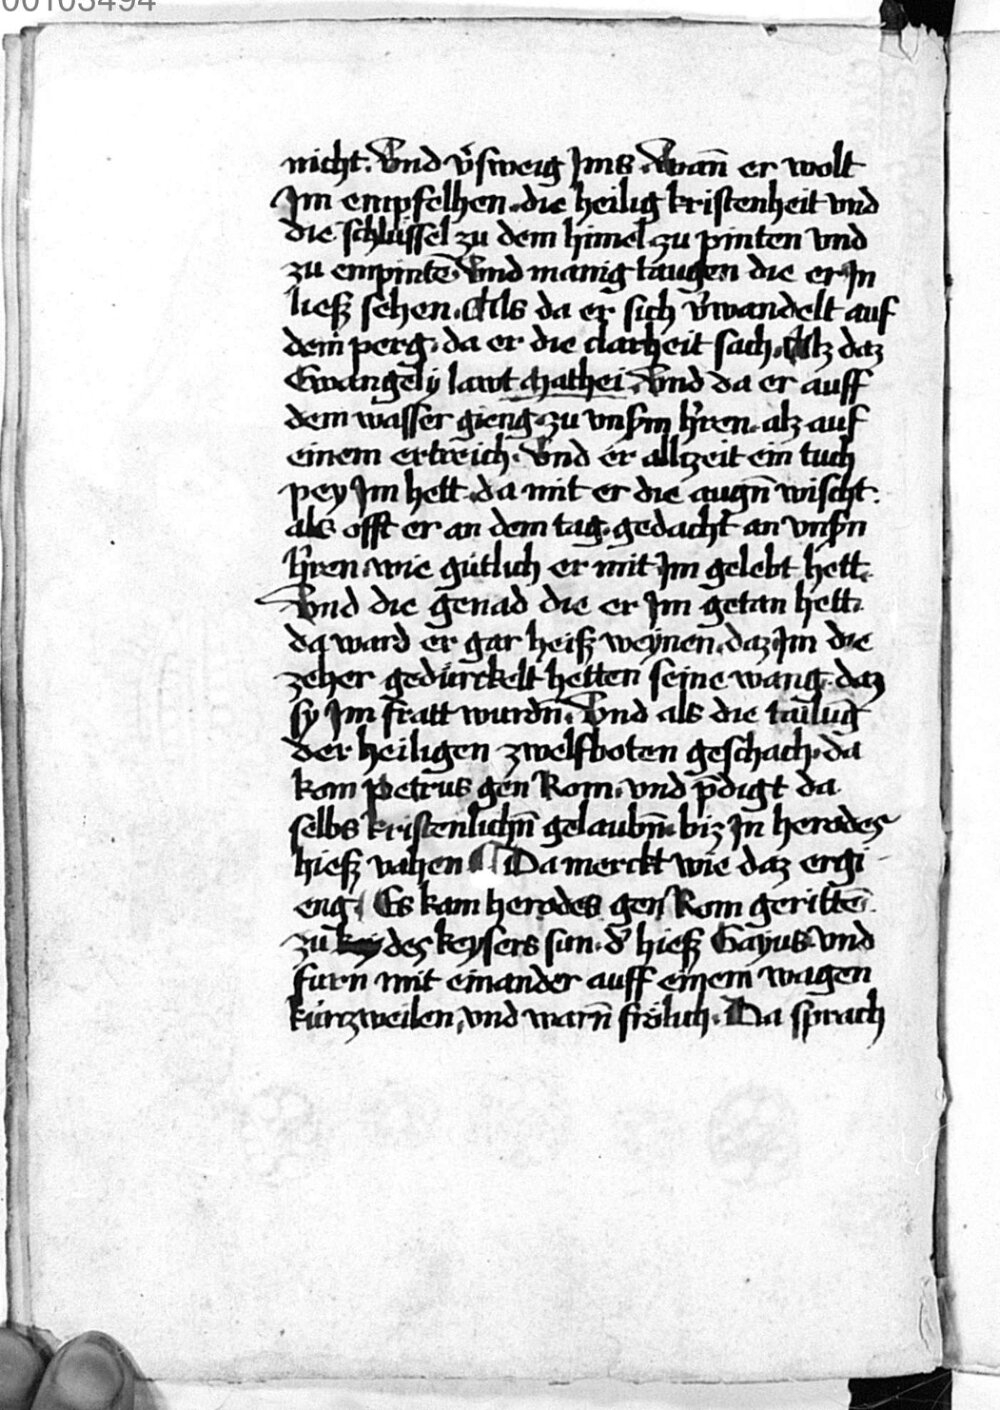 00103494
nicht. Vnd v̓sweig Jms. Wann̄ er wolt
Jm empfelhen. die heilig kristenheit vnd
die schlüssel zu dem himel zu pinten vnd
zu empintē. Vnd manig taugen die er Jn
ließ sehen. Als da er sich v̓wandelt auf
dem perg. da er die clarheit sach. Alz daz
Ewangely lawt Mathei. Vnd da er auff
dem wasser gieng zu vnsm̓ hr̓ren. alz auf
einem ertreich. Vnd er allzeit ein tuch
pey Jm hett. da mit er die augn̄ wischt.
als offt er an dem tag. gedacht an vnsn̓
hr̓ren. wie gütlich er mit Jm gelebt hett.
Vnd die genad die er Jm getan hett.
da ward er gar heiß weynen. daz Jm die
zeher gedürckelt hetten seine wang. daz
sy Jm fratt wurdn̄. Vnd als die tailūg
der heiligen zwelfboten geschach. da
kom Petrus gen Rom. vnd p̄digt da
selbs kristenlichn̄ gelaubn̄. biz Jn herodes
hieß vahen ¶ Da merckt wie daz ergi
eng. Es kam herodes gen Rom gerittē.
zu des keysers sun. d̓ hieß Gayus. Vnd
furn mit einander auff einem wagen
kürzweilen, vnd warn̄ frölich. Da sprach